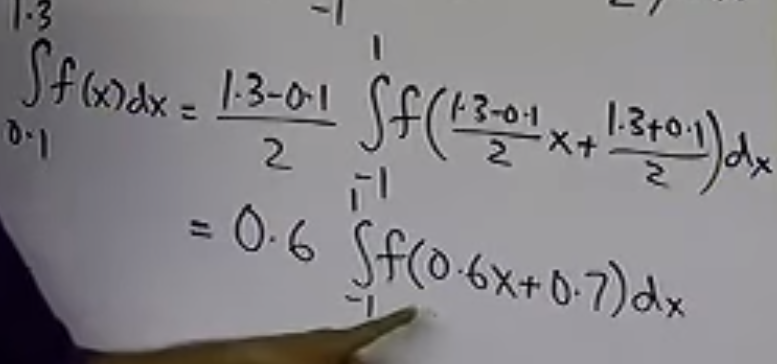 ∫_{0.1}^{1.3} f(x)dx = \frac{1.3-0.1}{2} ∫_{-1}^{1} f(\frac{1.3-0.1}{2}x+\frac{1.3+0.1}{2})dx
= 0.6 ∫_{-1}^{1} f(0.6x+0.7)dx